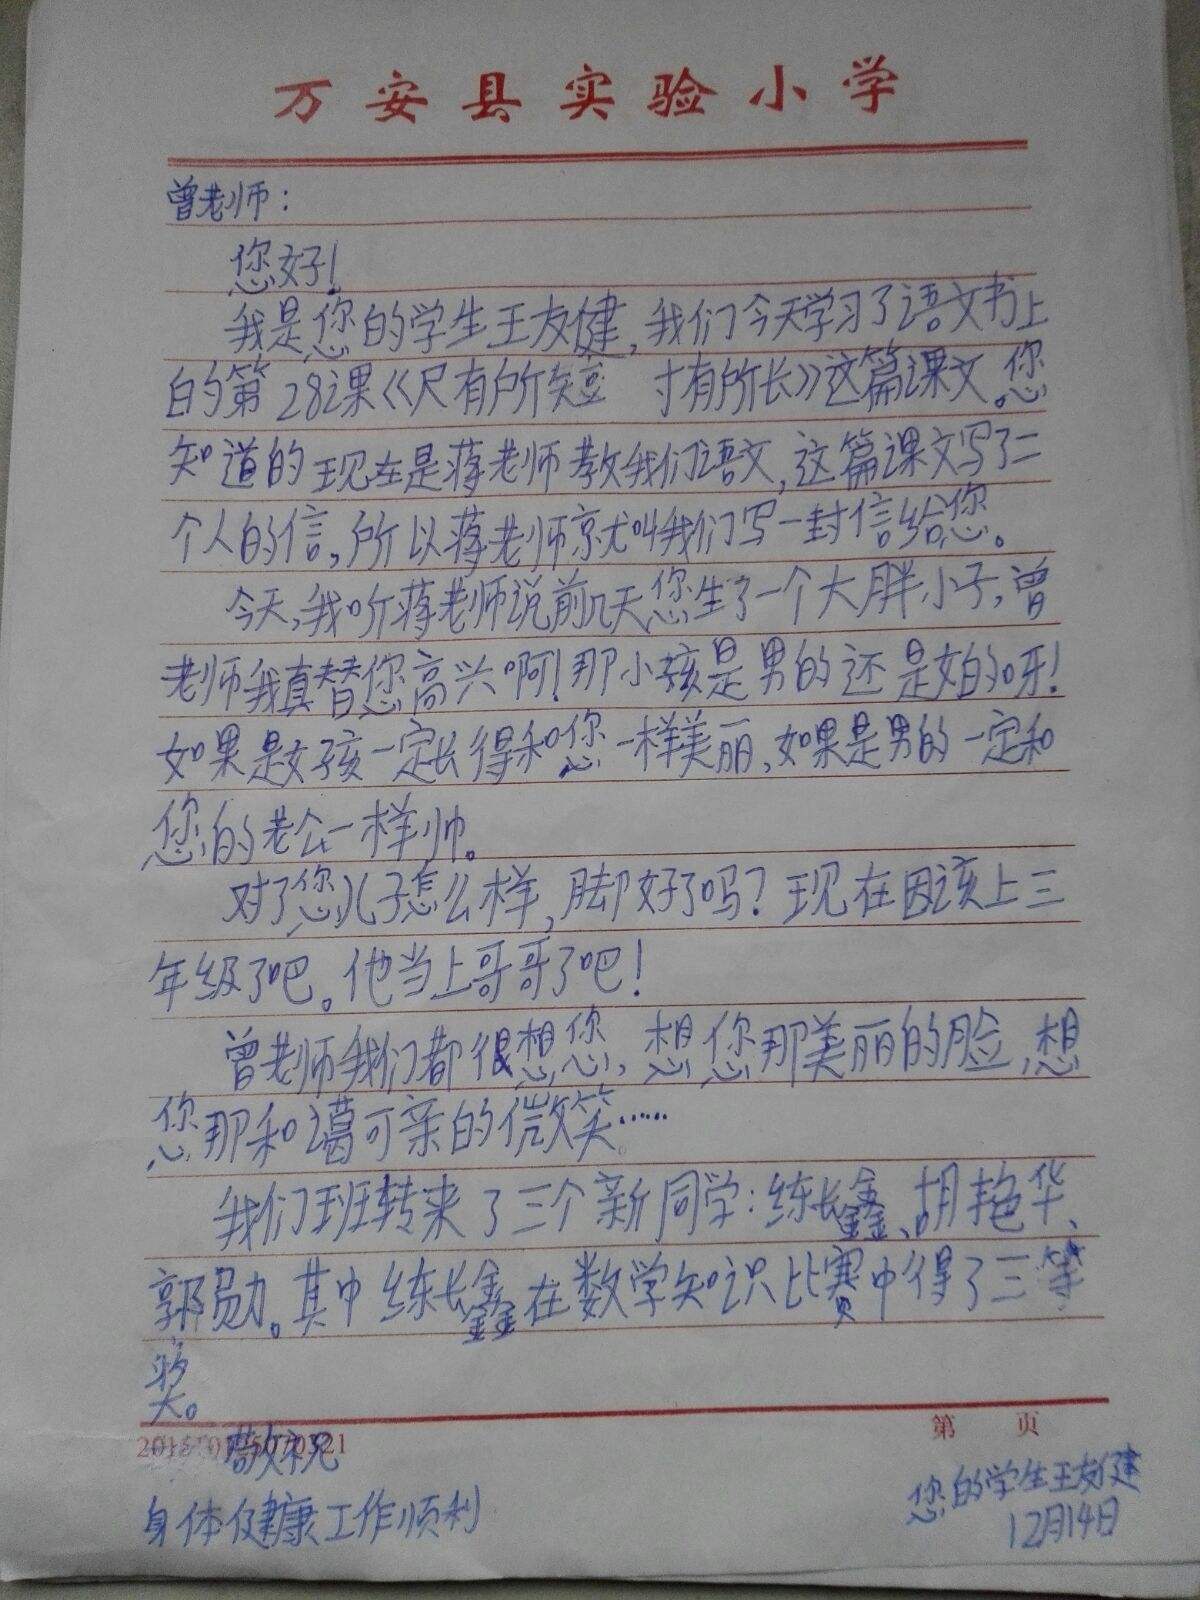 万安县实验小学
曾老师:
您好!
我是您的学生王友健,我们今天学习了语文书上
的第28课《尺有所短 寸有所长》这篇课文。您
知道的现在是蒋老师教我们语文,这篇课文写了二
个人的信,所以蒋老师就叫我们写一封信给您。
今天,我听蒋老师说前几天您生了一个大胖小子,曾
老师我真替您高兴啊!那小孩是男的还是女的呀!
如果是女孩一定长得和您一样美丽,如果是男的一定和
您的老公一样帅。
对了您儿子怎么样,脚好了吗?现在因该上三
年级了吧。他当上哥哥了吧!
曾老师我们都很想您,想您那美丽的脸,想
您那和谒可亲的微笑……
我们班转来了三个新同学:练长鑫、胡艳华、
郭勋。其中练长鑫在数学知识比赛中得了三等
奖。
第 页
敬祝
您的学生王友健
身体健康工作顺利
12月14日